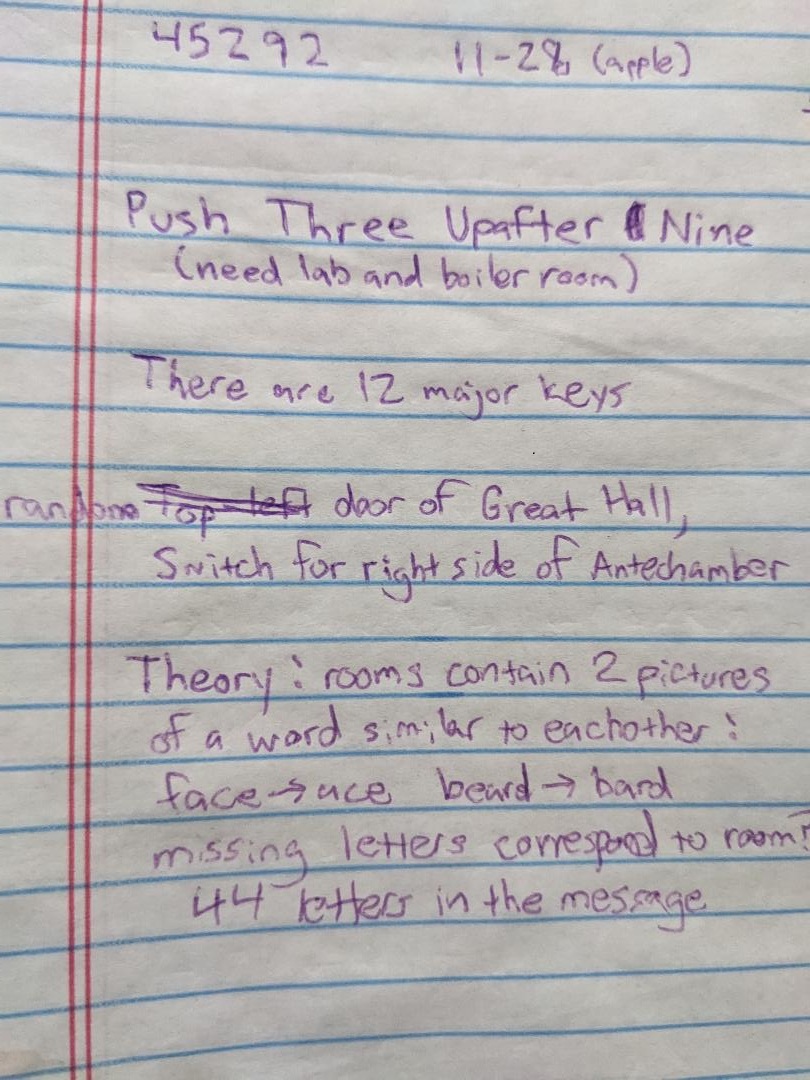 45292 11-28 (apple)
Push Three Upafter Nine
(need lab and boiler room)
There are 12 major keys
random door of Great Hall,
Switch for right side of Antechamber
Theory: rooms contain 2 pictures
of a word similar to eachother:
face → ace beard → bard
missing letters correspond to room?
44 letters in the message